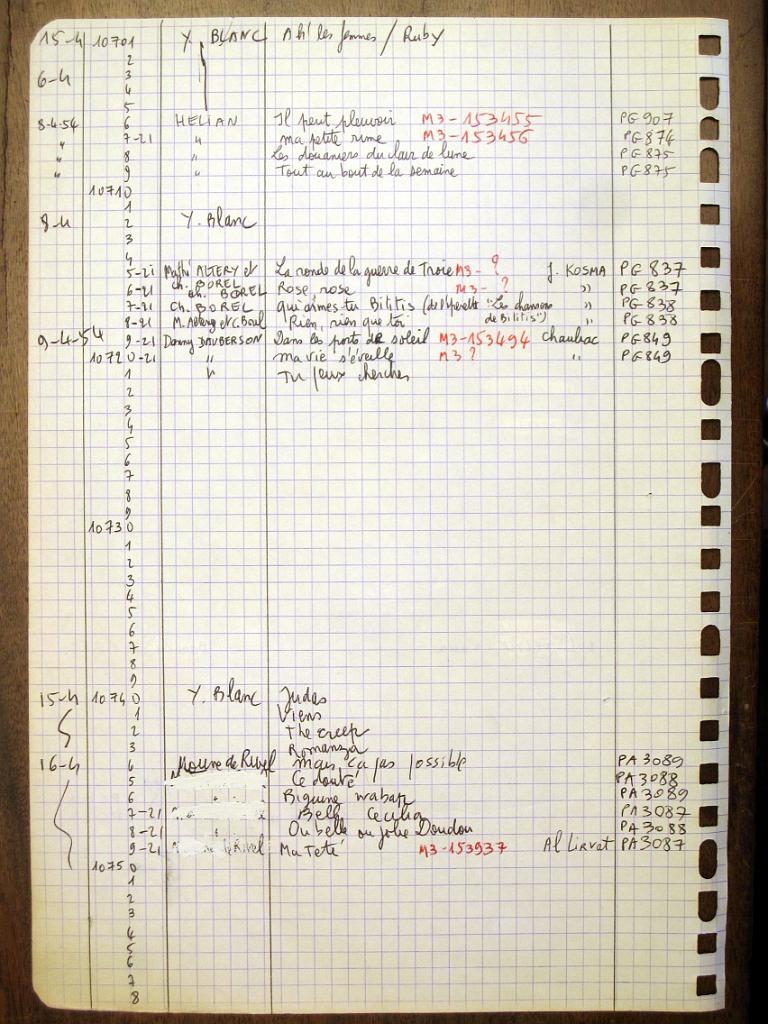 15-4 10701 Y. BLANC Ah! les femmes / Ruby
2
6-4 3
4
5
8-4-54 6 HELIAN Il peut pleuvoir M3-153455 PG 907
" 7-21 " ma petite rime M3-153456 PG 874
" 8 " Les douaniers du clair de lune PG 875
" 9 " Tout au bout de la semaine PG 875
10710
1
8-4 2 Y. Blanc
3
4
5-21 Mathé ALTERY et La ronde de la guerre de Troie M3- ? J. KOSMA PG 837
6-21 ch. BOREL Rose, rose M3- ? " PG 837
7-21 Ch. BOREL qui aimes-tu Bilitis (de l'opérette "Les chansons PG 838
8-21 M. Altery et C. Borel Rien, rien que toi de Bilitis") " PG 838
9-4-54 9-21 Danny DAUBERSON Dans les ports de soleil M3-153494 Chauliac PG 849
10720-21 " ma vie s'éveille M3 ? " PG 849
1 " Tu peux chercher
2
3
4
5
6
7
8
9
10730
1
2
3
4
5
6
7
8
9
15-4 10740 Y. Blanc Judas
1 Viens
2 The creep
3 Romanza
16-4 4 Moune de Rivel mais ça pas possible PA 3089
5 Ce PA 3088
6 Biguine wabap PA 3089
7-21 Belle Cecilia PA 3087
8-21 Ou belle ou jolie Doudou PA 3088
9-21 de Rivel Ma Teté M3-153937 Al Lirvat PA 3087
10750
1
2
3
4
5
6
7
8